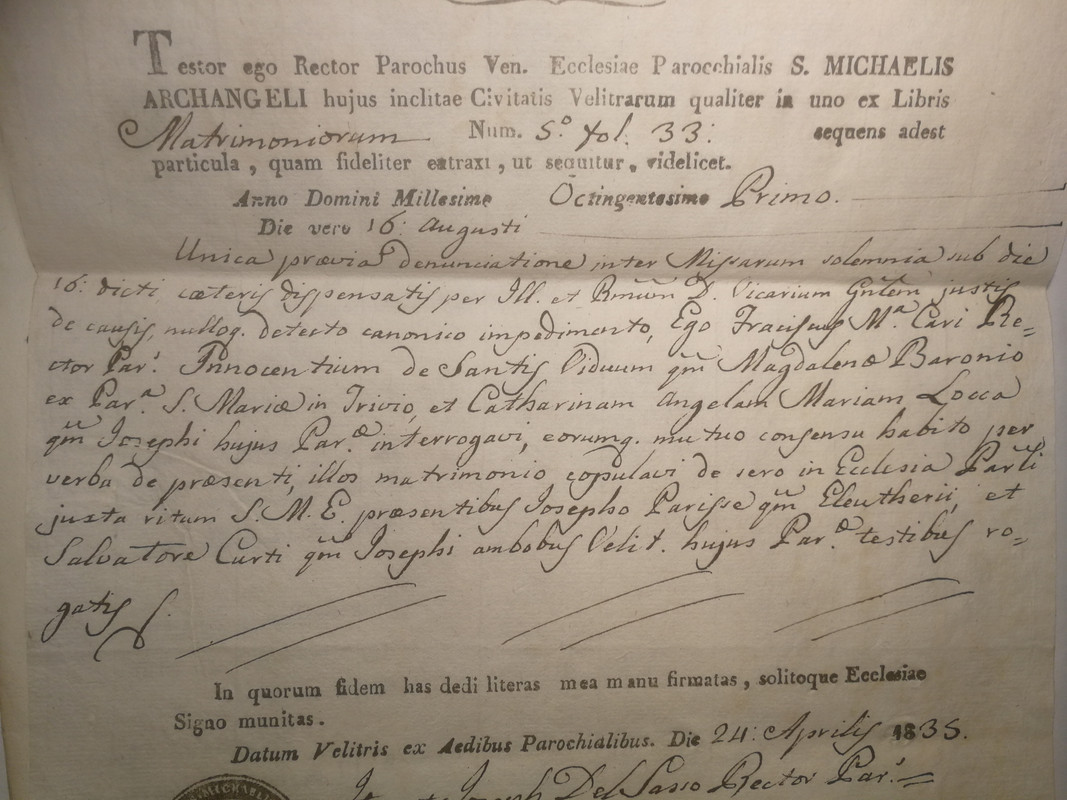 Testor ego Rector Parochus Ven. Ecclesiae Parocchialis S. MICHAELIS
ARCHANGELI hujus inclitae Civitatis Velitrarum qualiter in uno ex Libris
Matrimoniorum Num. 5.° fol. 33: sequens adest
particula, quam fideliter extraxi, ut sequitur, videlicet.
Anno Domini Millesimo Octingentesimo Primo.
Die vero 16: Augusti
Unica prævia denunciatione inter Missarum solemnia sub die
16: dicti cæteris dispensatis per Ill. et Rmum D. Vicarium Gnlem justis
de causis, nulloq. detecto canonico impedimento, Ego Fraciscus M.a Cari Re=
ctor Par.s Innocentium de Santis Viduum qm Magdalenæ Baronio
ex Par.a S. Mariæ in Trivio, et Catharinam Angelam Mariam Locca
qm Josephi hujus Par.æ interrogavi, eorumq. mutuo consensu habito per
verba de præsenti, illos matrimonio copulavi de sero in Ecclesia Parli
juxta ritum S. M. E. præsentibus Josepho Parisse qm Eleutherii, et
Salvatore Curti qm Josephi ambobus Velit. hujus Par.æ testibus ro=
gatis
In quorum fidem has dedi literas mea manu firmatas, solitoque Ecclesiae
Signo munitas.
Datum Velitris ex Aedibus Parochialibus. Die 24: Aprilis 1835.
Joseph Del Sasso Rector Par.s
MICHAELI